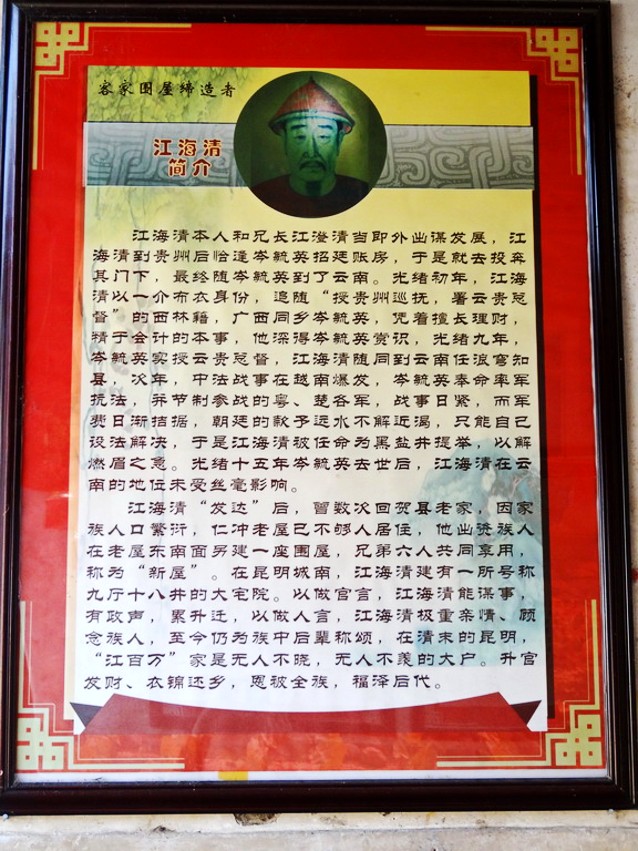 客家围屋缔造者
江海清
简介
江海清本人和兄长江澄清当即外出谋发展，江
海清到贵州后恰逢岑毓英招廷账房，于是就去投奔
其门下，最终随岑毓英到了云南。光绪初年，江海
清以一介布衣身份，追随“授贵州巡抚，署云贵总
督”的西林籍，广西同乡岑毓英，凭着擅长理财，
精于会计的本事，他深得岑毓英赏识，光绪九年，
岑毓英实授云贵总督，江海清随同到云南任浪穹知
县，次年，中法战事在越南爆发，岑毓英奉命率军
抗法，并节制参战的粤、楚各军，战事日紧，而军
费日渐拮据，朝廷的款予远水不解近渴，只能自己
设法解决，于是江海清被任命为黑盐井提举，以解
燃眉之急。光绪十五年岑毓英去世后，江海清在云
南的地位未受丝毫影响。
江海清“发达”后，曾数次回贺县老家，因家
族人口繁衍，仁冲老屋已不够人居住，他出资族人
在老屋东南面另建一座围屋，兄弟六人共同享用，
称为“新屋”。在昆明城南，江海清建有一所号称
九厅十八井的大宅院。以做官言，江海清能谋事，
有政声，累升迁，以做人言，江海清极重亲情、顾
念族人，至今仍为族中后辈称颂，在清末的昆明，
“江百万”家是无人不晓，无人不羡的大户。升官
发财、衣锦还乡，恩被全族，福泽后代。